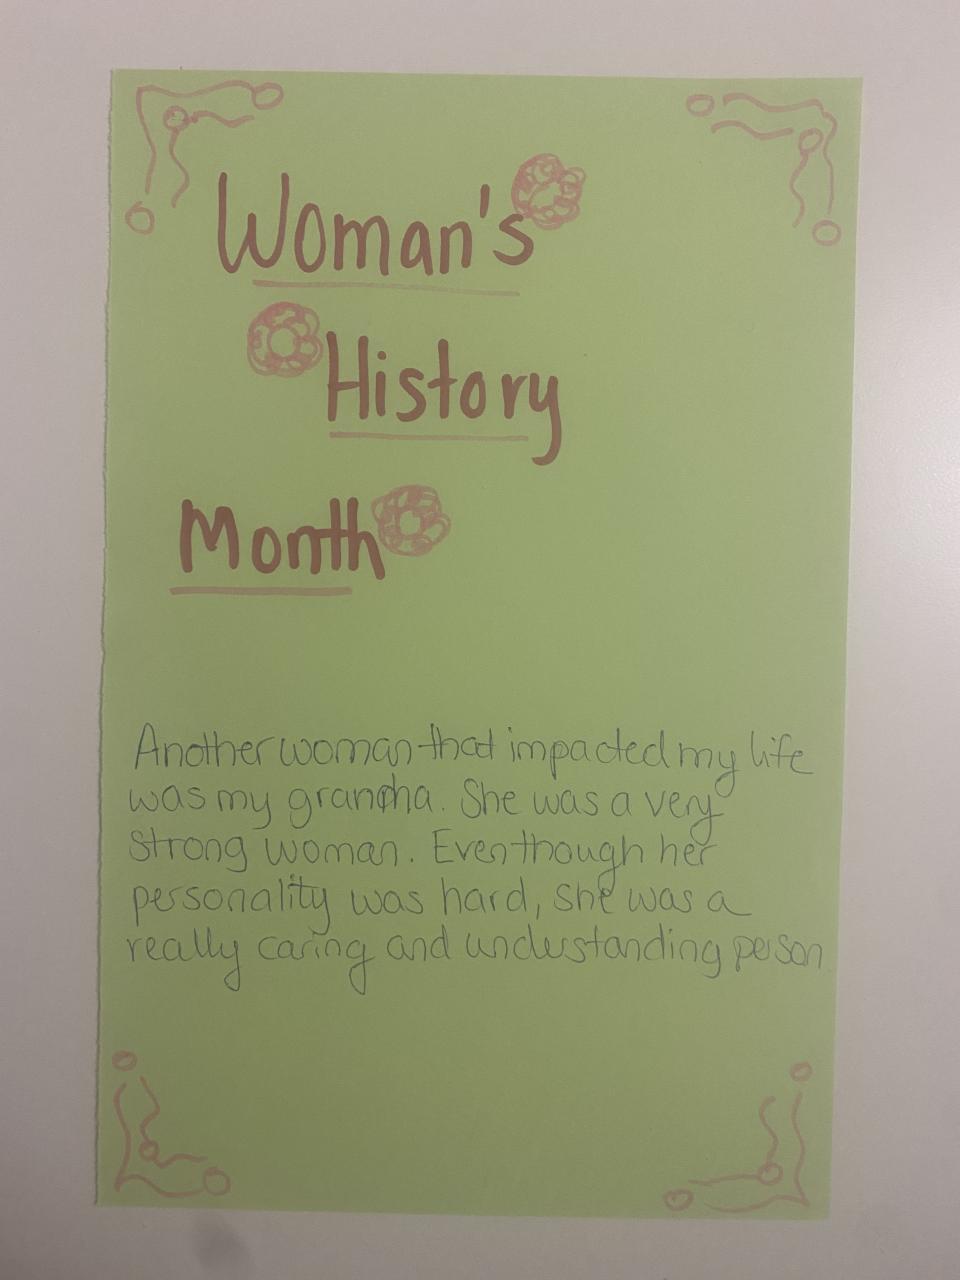 Woman's
History
Month
Another woman that impacted my life
was my grandma. She was a very
strong woman. Eventhough her
personality was hard, she was a
really caring and understanding person